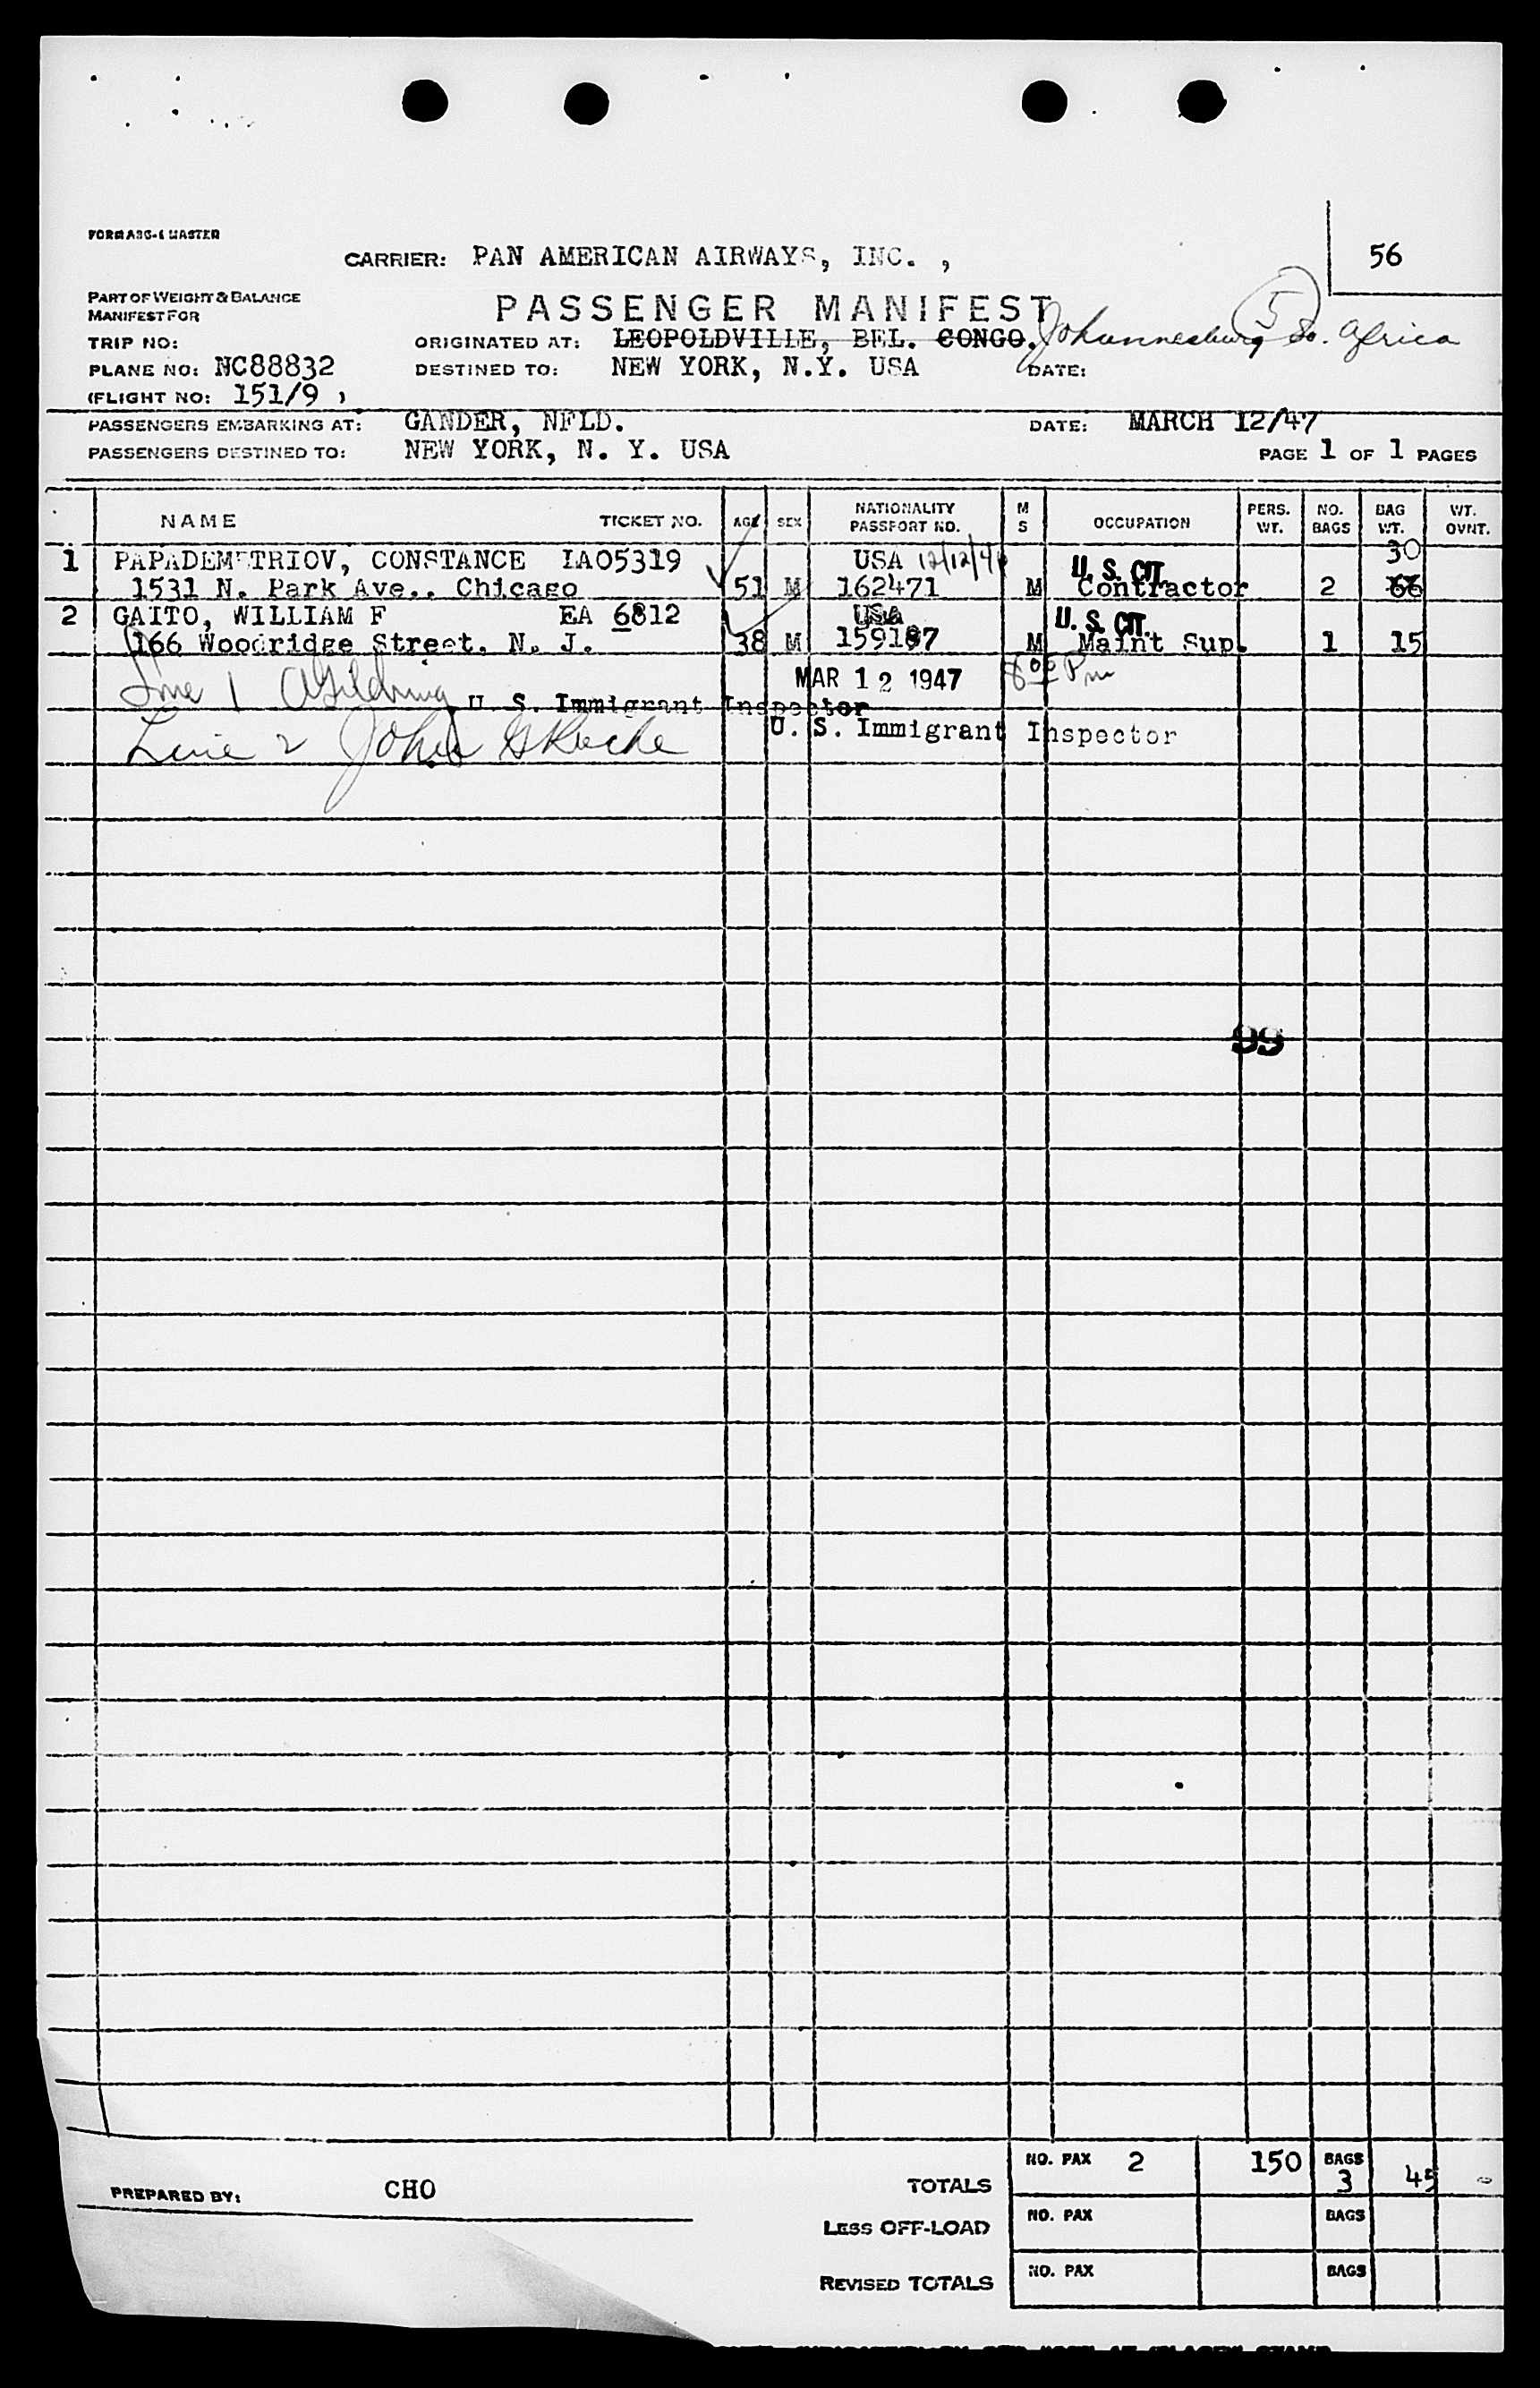 FORM ABG-1 MASTER
CARRIER: PAN AMERICAN AIRWAYS, INC. ,
56
PART OF WEIGHT & BALANCE
MANIFEST FOR
PASSENGER MANIFEST
5
TRIP NO:
ORIGINATED AT: LEOPOLDVILLE, BEL. CONGO. Johannesburg So. Africa
PLANE NO: NC88832 DESTINED TO: NEW YORK, N.Y. USA DATE:
(FLIGHT NO: 151/9 )
PASSENGERS EMBARKING AT: GANDER, NFLD. DATE: MARCH 12/47
PASSENGERS DESTINED TO: NEW YORK, N. Y. USA PAGE 1 OF 1 PAGES
NAME TICKET NO. AGE SEX NATIONALITY PASSPORT NO. M S OCCUPATION PERS. WT. NO. BAGS BAG WT. WT. OVNT.
1 PAPADEMETRIOV, CONSTANCE IA05319 USA 12/12/46 U. S. CIT. 30
1531 N. Park Ave., Chicago 51 M 162471 M Contractor 2 66
2 GAITO, WILLIAM F EA 6812 USA U. S. CIT.
166 Woodridge Street, N. J. 38 M 159187 M Maint Sup. 1 15
Line 1
U. S. Immigrant Inspector
MAR 12 1947 8 00 Pm
Line 2 John
U. S. Immigrant Inspector
99
PREPARED BY: CHO
TOTALS NO. PAX 2 150 BAGS 3 45 -
LESS OFF-LOAD NO. PAX BAGS
REVISED TOTALS NO. PAX BAGS